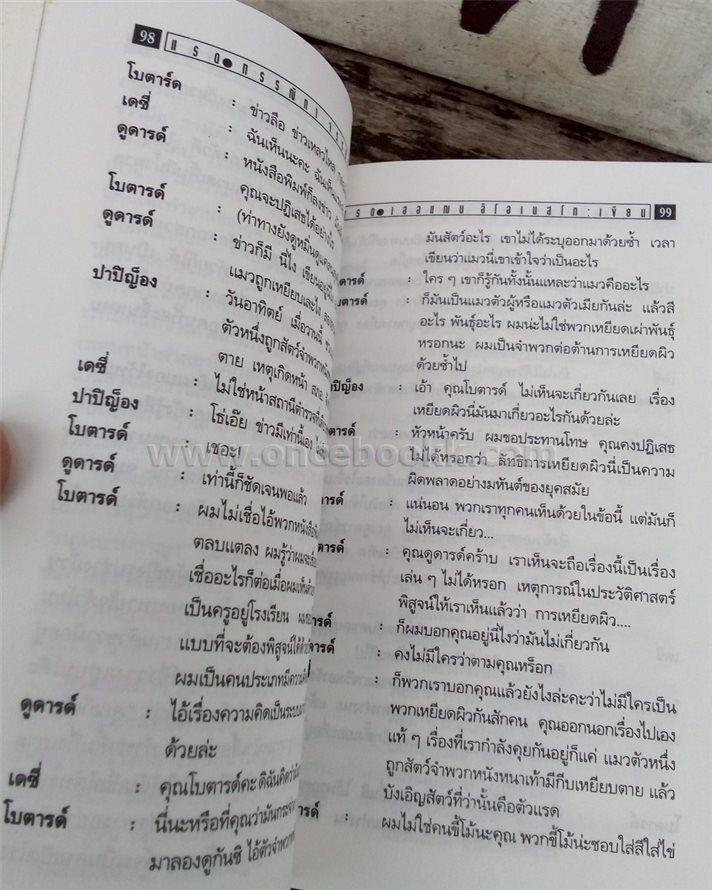 98
แรด
โบตาร์ด : ข่าวลือ ข่าวเหลวไหล
เดซี่ : ฉันเห็นนะคะ ฉันเห็น
ดูดาร์ด : หนังสือพิมพ์ก็ลงข่าว
คุณจะปฏิเสธได้อย่างไร
โบตารด์ : (ท่าทางยังดูหมิ่นดูแคลน
ดูดารด์ : ข่าวก็มี นี่ไง เขียนอยู่นี่
แมวถูกเหยียบเละไง
ปาปิญ็อง : วันอาทิตย์ เมื่อวานนี้
ตัวหนึ่งถูกสัตว์จำพวกหนัง
ตาย เหตุเกิดหน้า
เดซี่ : ไม่ใช่หน้าสถานีตำรวจ
ปาปิญ็อง : โธ่เอ๊ย ข่าวมีเท่านี้เอง
โบตารด์ : เชอะ!
ดูดารด์ : เท่านี้ก็ชัดเจนพอแล้ว
โบตารด์ : ผมไม่เชื่อไอ้พวกหนังสือ
ตลบแตลง ผมรู้ว่าผมจะ
เชื่ออะไรก็ต่อเมื่อผมเห็น
เป็นครูอยู่โรงเรียน
แบบที่จะต้องพิสูจน์ได้
ผมเป็นคนประเภทมีความคิด
ดูดารด์ : ไอ้เรื่องความคิดเป็นระบบ
ด้วยล่ะ
เดซี่ : คุณโบตารด์คะ ดิฉันคิดว่า
โบตารด์ : นี่นะหรือที่คุณว่ามันกระจ่าง
มาลองดูกันซิ ไอ้ตัวจำพวก
เออแฌน อิโอเนสโก : เขียน 99
มันสัตว์อะไร เขาไม่ได้ระบุออกมาด้วยซ้ำ เวลา
เขียนว่าแมวนี่เขาเข้าใจว่าเป็นอะไร
ดารด์ : ใคร ๆ เขาก็รู้กันทั้งนั้นแหละว่าแมวคืออะไร
บตารด์ : ก็มันเป็นแมวตัวผู้หรือแมวตัวเมียกันล่ะ แล้วสี
อะไร พันธุ์อะไร ผมน่ะไม่ใช่พวกเหยียดเผ่าพันธุ์
หรอกนะ ผมเป็นจำพวกต่อต้านการเหยียดผิว
ด้วยซ้ำไป
ปิญ็อง : เอ้า คุณโบตารด์ ไม่เห็นจะเกี่ยวกันเลย เรื่อง
เหยียดผิวนี่มันมาเกี่ยวอะไรกันด้วยล่ะ
ตารด์ : หัวหน้าครับ ผมขอประทานโทษ คุณคงปฏิเสธ
ไม่ได้หรอกว่า ลัทธิการเหยียดผิวนี่เป็นความ
ผิดพลาดอย่างมหันต์ของยุคสมัย
ารด์ : แน่นอน พวกเราทุกคนเห็นด้วยในข้อนี้ แต่มันก็
ไม่เห็นจะเกี่ยว...
ตารด์ : คุณดูดารด์คร้าบ เราเห็นจะถือเรื่องนี้เป็นเรื่อง
เล่น ๆ ไม่ได้หรอก เหตุการณ์ในประวัติศาสตร์
พิสูจน์ให้เราเห็นแล้วว่า การเหยียดผิว....
ารด์ : ก็ผมบอกคุณอยู่นี่ไงว่ามันไม่เกี่ยวกัน
ารด์ : คงไม่มีใครว่าตามคุณหร็อก
: ก็พวกเราบอกคุณแล้วยังไงล่ะคะว่าไม่มีใครเป็น
พวกเหยียดผิวกันสักคน คุณออกนอกเรื่องไปเอง
แท้ ๆ เรื่องที่เรากำลังคุยกันอยู่ก็แค่ แมวตัวหนึ่ง
ถูกสัตว์จำพวกหนังหนาเท้ามีกีบเหยียบตาย แล้ว
บังเอิญสัตว์ที่ว่านั้นคือตัวแรด
ารด์ : ผมไม่ใช่คนขี้โม้นะคุณ พวกขี้โม้น่ะชอบใส่สีใส่ไข่